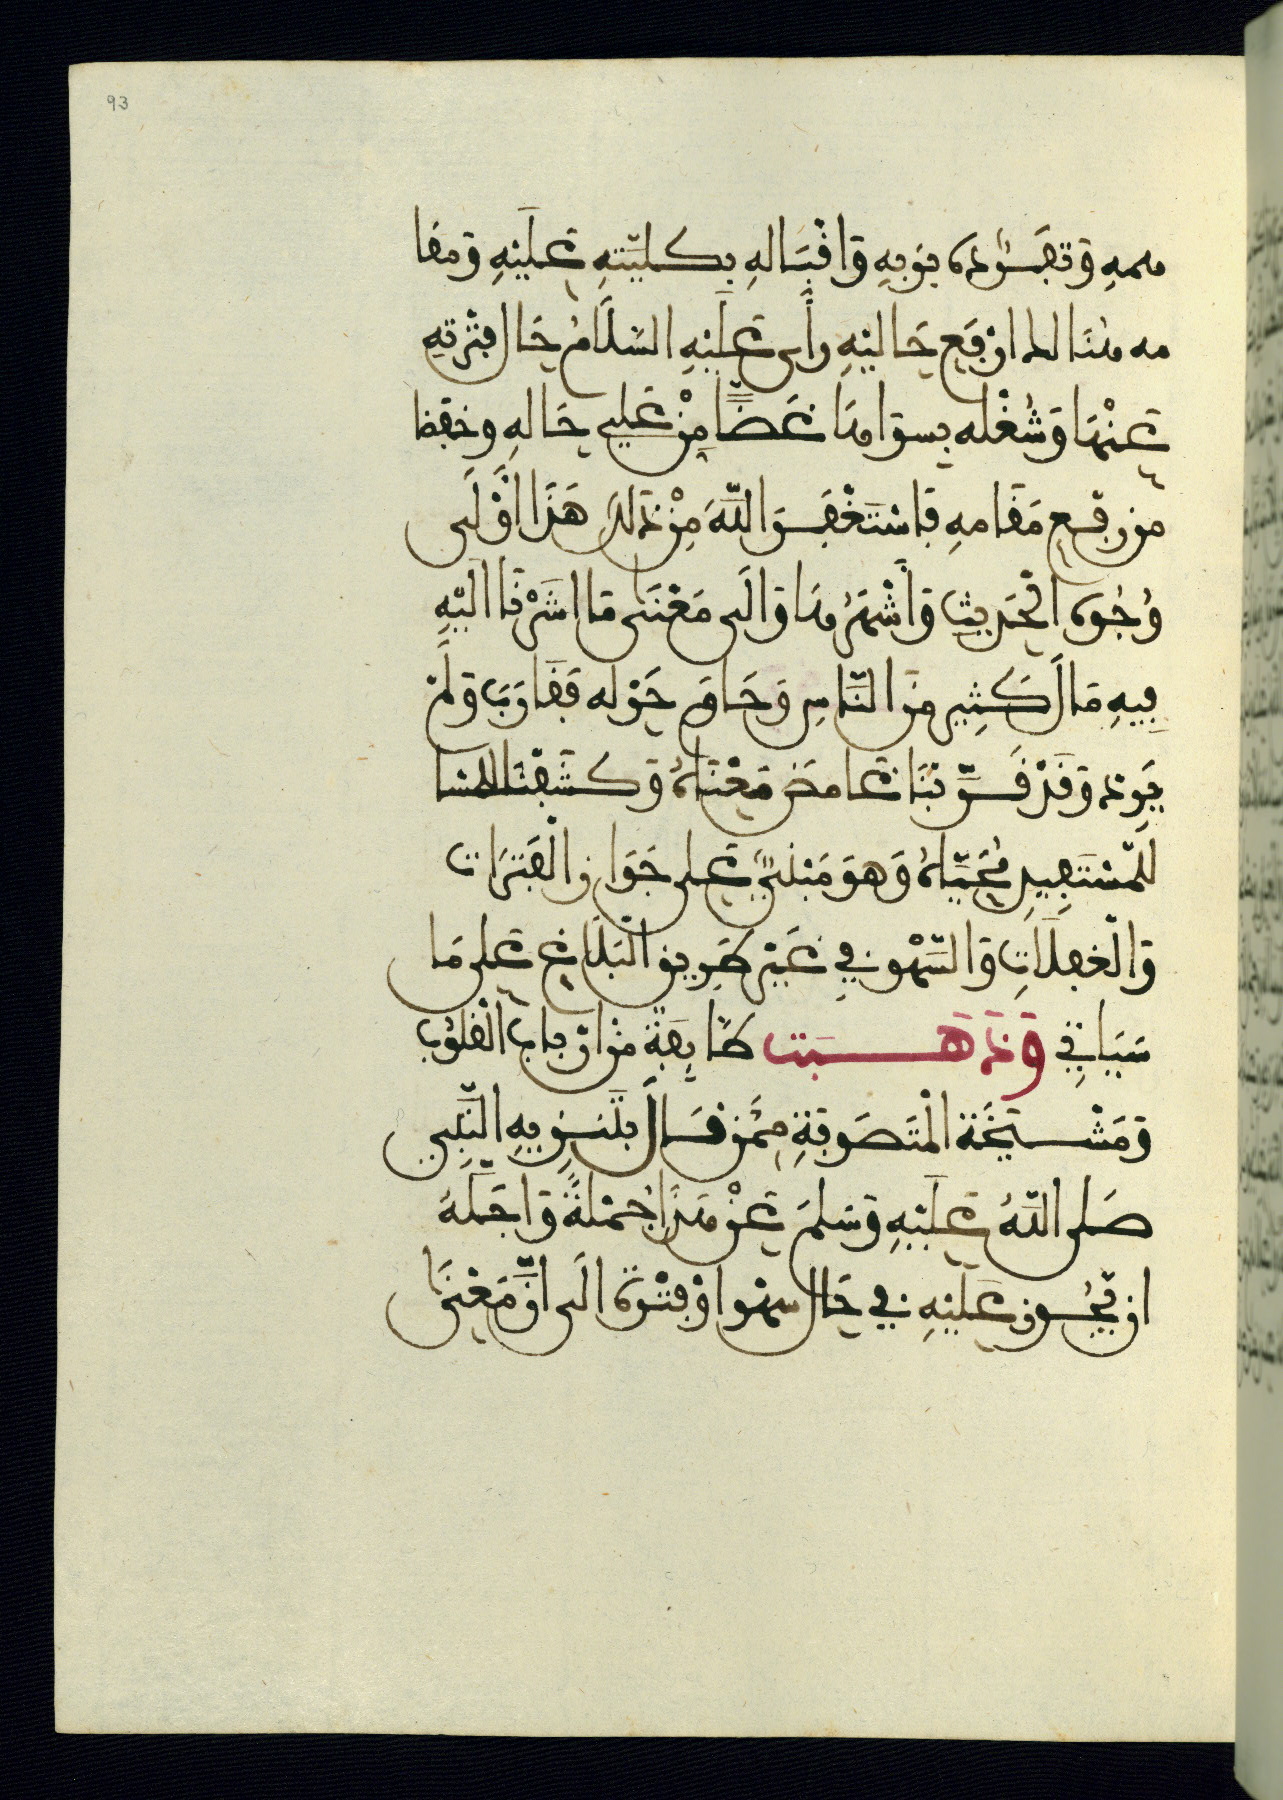 93
همهِ وَتَفَرُّدِه بِرَبِهِ وَاقْبَالهِ بكليَّتهِ عَليْهِ وَمقا
مه هُنَا لك ارْفَع حَاليْهِ رأَى عَليْهِ السّلَامُ حَال فتْرتهِ
عَنْهَا وَشُغْله بِسوَاهَا غَضًّا مِنْ عَلِي حَالهِ وخفضا
من رفيع مَقَامهِ فَاسْتَغْفَرَ اللّهَ مِنْ ذَلك هَذَا اوْلَى
وُجُوه الْحَديثِ وَأَشْهَرُهَا وَالَى مَعْنَى مَا اشَرْنَا اليْهِ
فِيهِ مَالَ كَثِير مِنَ النَّاسِ وَحَامَ حَوْله فَقَارَبَ وَلَمْ
يَرِد وَقَدْ قَرَّبْنَا غَامضَ مَعْنَاهُ وَكشَفْنَا للمسْا
لِلمُسْتَفِيدِ مُحَيَّاهُ وَهوَ مَبْنيٌّ عَلى جَوَازِ الْفَتَرَاتِ
وَالْغفلَاتِ وَالسَّهْوِ في غَيْر طَرِيق الْبَلَاغ عَلى مَا
سَيَاتِي وَذَهَبَت طَايِفَةٌ مّن ارْبَاب الْقلُوب
وَمَشْيَخَة الْمُتَصَوفَةِ مِمَّن قَالَ بتَنزيهِ النَّبِي
صَلى اللّهُ عَليْهِ وَسَلمَ عَنْ هَذَا جُمْلةً وَاجَلّهُ
ان يَّجُوز عَليْهِ في حَال سهْو اوْ فتْرَة الَى انّ مَعْنَى